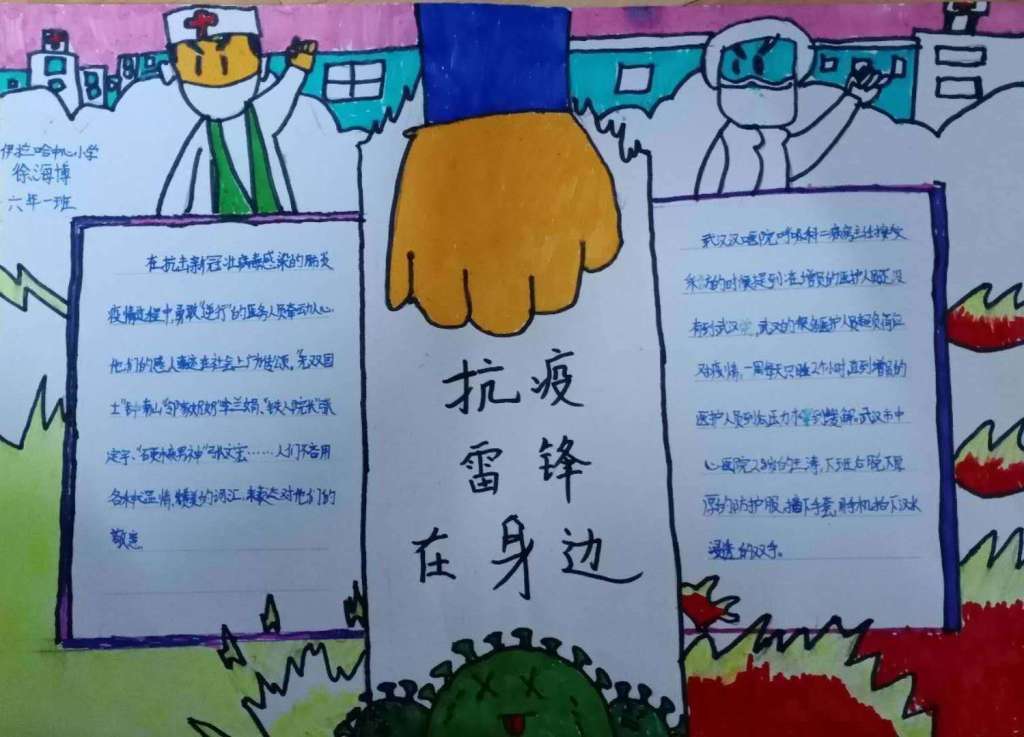 伊拉哈中心小学
徐海博
六年一班
在抗击新冠状病毒感染的肺炎
疫情过程中,勇敢"逆行"的医务人员奋动人心,
他们的感人事迹在社会上广为传颂,"无双国
士"钟南山,"邻家奶奶"李兰娟,"铁人院长"张
定宇,"硬核男神"张文宏……人们不吝用
各种
的词汇,来表达对他们的
敬意
抗疫
雷锋
在身边
武汉汉口医院呼吸科二病房主任接受
采访的时候提到,在增员的医护人员还没
有到武汉
,武汉的很多医护人员超负荷应
对疫情,一周每天只睡2个小时,直到增员的
医护人员到位压力才得到缓解。武汉市中
心医院28岁的王涛,下班后脱下厚
厚的防护服,摘下手套,用手机拍下汉水
浸透的双手。